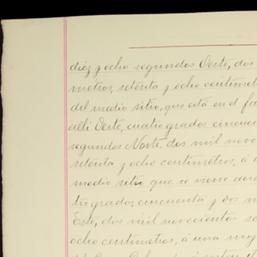 diez y ocho segundos Oeste, dos
metros, setenta y ocho centímet
del medio sitio, que está en el fa
alli Oeste, cuatro grados cincue
segundos Norte, dos mil nove
setenta y ocho centímetros, á
medio sitio que se
tregrados, cincuenta y dos m
Este, dos mil novecientos se
ocho centímetros, á una moj